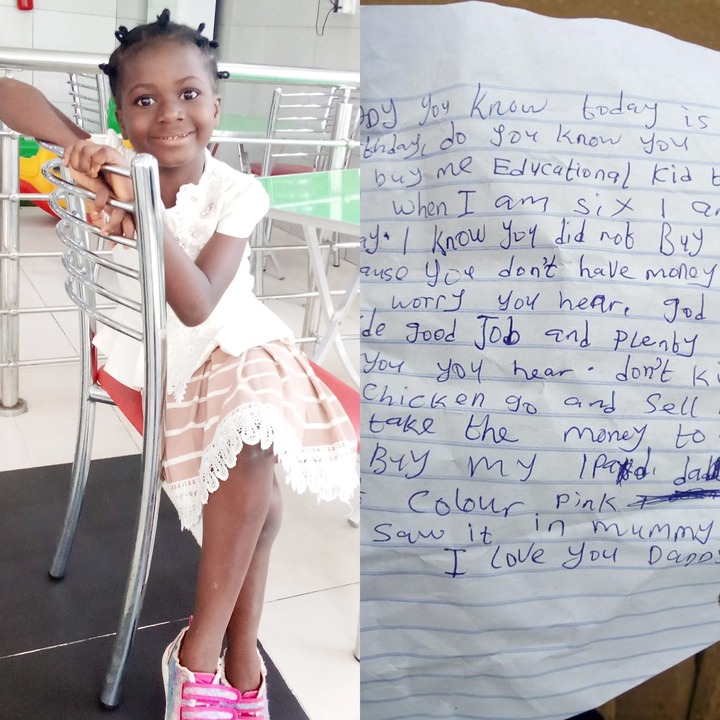 DDY you know today is
thday, do you know you
buy me Educational Kid t
when I am six I a
ay. I know you did not Buy
ause you don't have money
worry you hear. god
de good Job and plenty
you you hear. don't ki
Chicken go and Sell
take the money to
Buy my IPad.
Colour Pink
Saw it in mummy
I love you Dadd